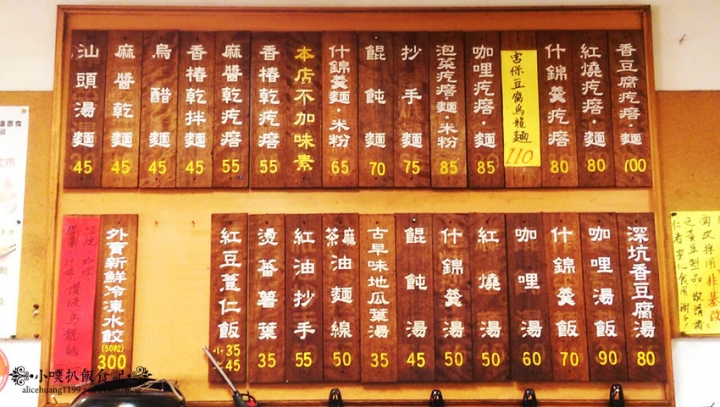 香豆腐疙瘩·麵 100
紅燒疙瘩·麵 80
什錦疙瘩 80
宮保豆腐烏龍麵 110
咖哩疙瘩·麵 85
泡菜疙瘩麵·米粉 85
抄手麵 75
餛飩麵 70
什錦羹麵·米粉 65
本店不加味素
香椿乾疙瘩 55
麻醬乾疙瘩 55
香椿乾拌麵 45
烏醋麵 45
麻醬乾麵 45
汕頭湯麵 45
深坑香豆腐湯 80
咖哩湯飯 90
什錦羹飯 70
咖哩湯 60
紅燒湯 50
什錦羹湯 50
餛飩湯 45
古早味地瓜葉湯 35
麻茶油麵線 50
紅油抄手 55
燙蕃薯葉 35
紅豆薏仁飯 小35 45
外賣新鮮冷凍水餃 (50粒) 300
小噗扒飯食記
alicehuang1199